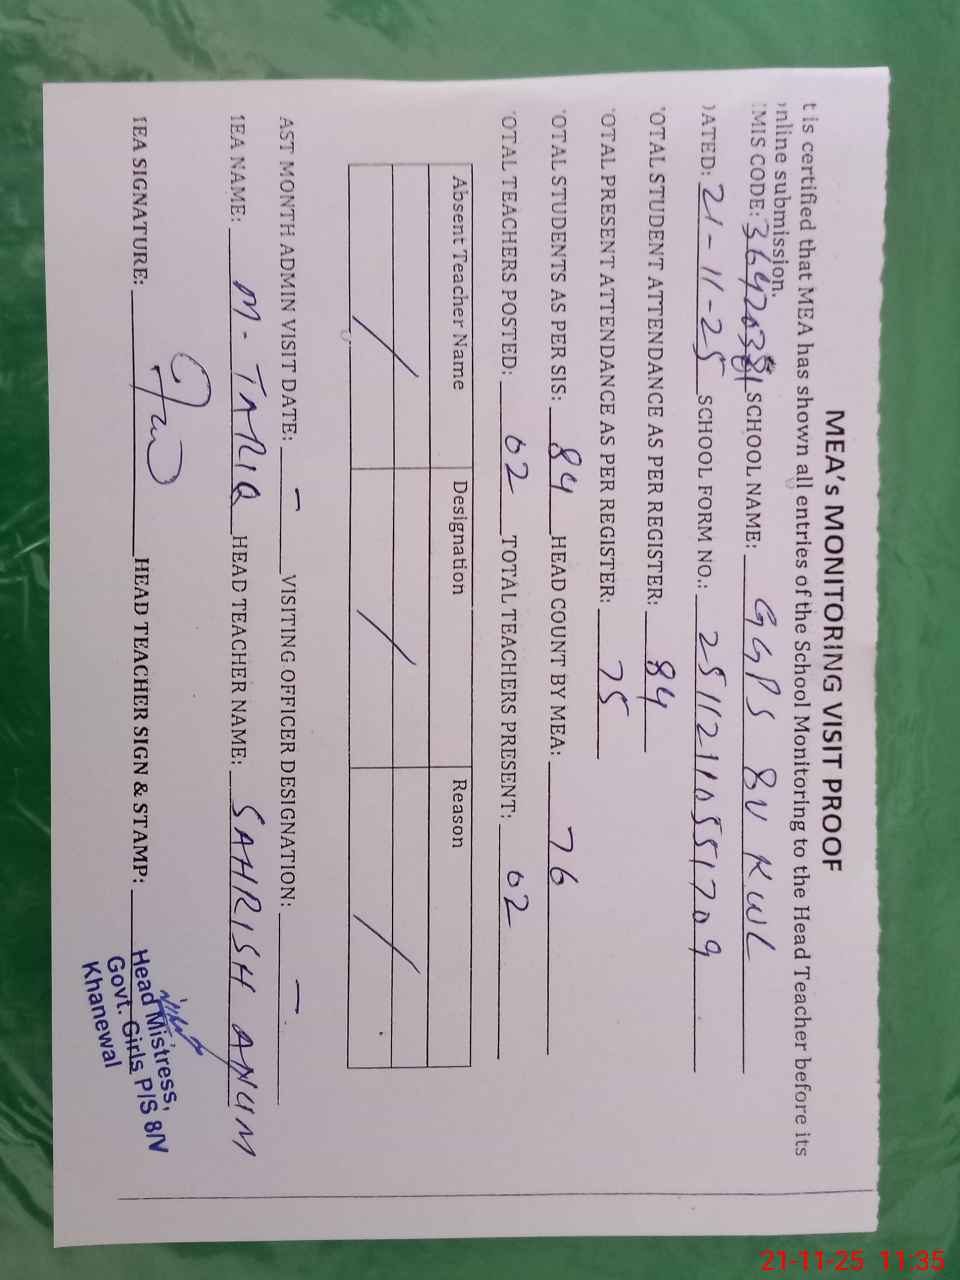 MEA's MONITORING VISIT PROOF
t is certified that MEA has shown all entries of the School Monitoring to the Head Teacher before its
nline submission.
MIS CODE: SCHOOL NAME: GGPS 8V KWL
DATED: 21-11-25 SCHOOL FORM NO.: 25112110551709
OTAL STUDENT ATTENDANCE AS PER REGISTER: 84
OTAL PRESENT ATTENDANCE AS PER REGISTER: 75
OTAL STUDENTS AS PER SIS: 84 HEAD COUNT BY MEA: 76
OTAL TEACHERS POSTED: 02 TOTAL TEACHERS PRESENT: 02
Absent Teacher Name Designation Reason
/ / /
AST MONTH ADMIN VISIT DATE: - VISITING OFFICER DESIGNATION: -
MEA NAME: M. TARIQ HEAD TEACHER NAME: SAHRISH ANUM
MEA SIGNATURE: HEAD TEACHER SIGN & STAMP:
Head Mistress,
Govt. Girls P/S 8/V
Khanewal
21-11-25 11:35